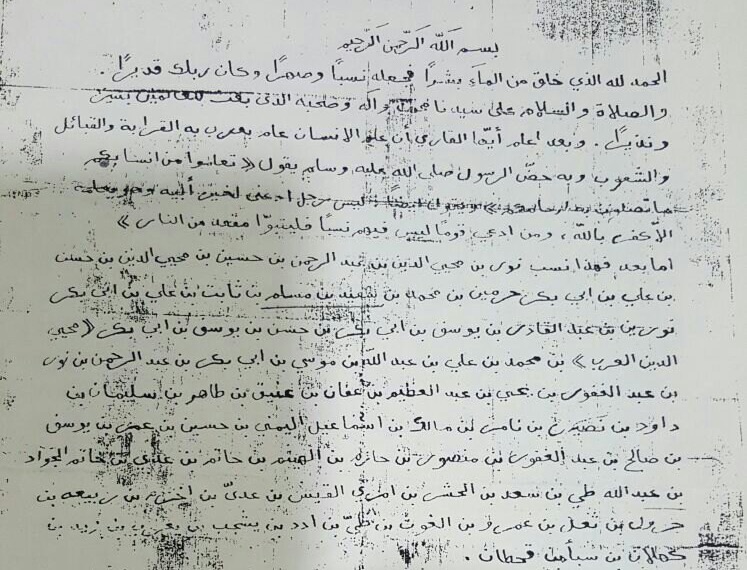 بسم الله الرحمن الرحيم
الحمد لله الذي خلق من الماء بشراً فجعله نسباً وصهراً وكان ربك قديراً .
والصلاة والسلام على سيدنا محمد وآله وصحبه الذي بعث للعالمين بشيرا
ونذيراً . وبعد اعلم أيها القارئ أن علم الانسان علم يعرف به القرابة والقبائل
والشعوب وبه حضّ الرسول صلى الله عليه وسلم يقول « تعلموا من انسابكم
ما تصلون به ارحامكم » ليس رجل ادعى لغير أبيه وهو يعلمه
الا كفر بالله ، ومن ادعى قوماً ليس فيهم نسباً فليتبوّأ مقعده من الناس »
اما بعد فهذا نسب نوى بن محيي الدين بن عبد الرحمن بن حسين بن محيي الدين بن حسن
بن علي بن ابي بكر بن محمد بن سعيد بن مسلم بن ثابت بن علي بن ابي بكر
نوى بن عبد القادر بن يوسف بن ابي بكر بن حسن بن يوسف بن ابي بكر « محيي
الدين العرب » بن محمد بن علي بن عبد الله بن موسى بن ابي بكر بن عبد الرحمن بن نوى
بن عبد الغفور بن يحيى بن عبد العظيم بن عفان بن عتيق بن طاهر بن سليمان بن
داود بن بن ناصر بن مالك بن اسماعيل اليمي بن حسين بن عمر بن يوسف
بن صالح بن عبد الغفور بن منصور بن حازم بن الهيثم بن حاتم بن عدي بن حاتم الجواد
بن عبد الله طي بن سعد بن الحشرج بن امرئ القيس بن عديّ بن اخزم بن ربيعه بن
جرول بن ثعل بن عمرو بن الغوث بن طيّ بن ادد بن يشجب بن بن زيد بن
كهلان بن سبأ من قحطان .